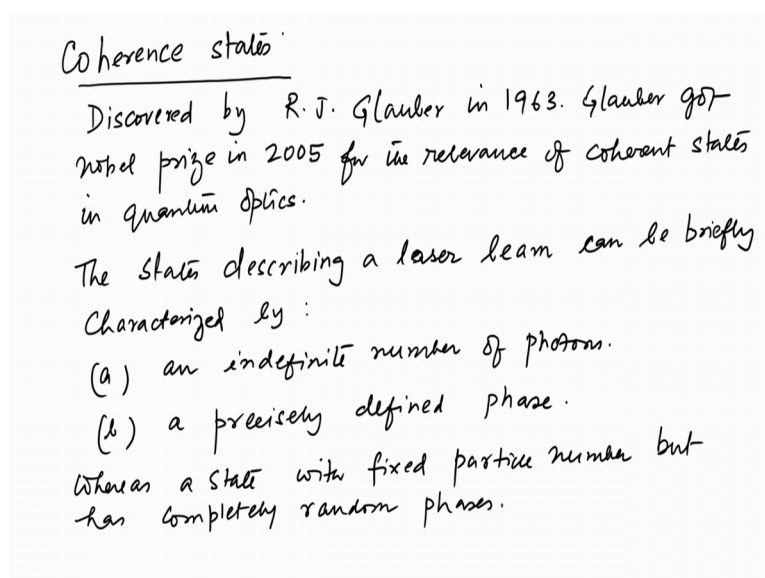 Coherence states
Discovered by R. J. Glauber in 1963. Glauber got
nobel prize in 2005 for the relevance of coherent states
in quantum optics.
The states describing a laser beam can be briefly
characterized by :
(a) an indefinite number of photons.
(b) a precisely defined phase.
Whereas a state with fixed particle number but
has completely random phases.